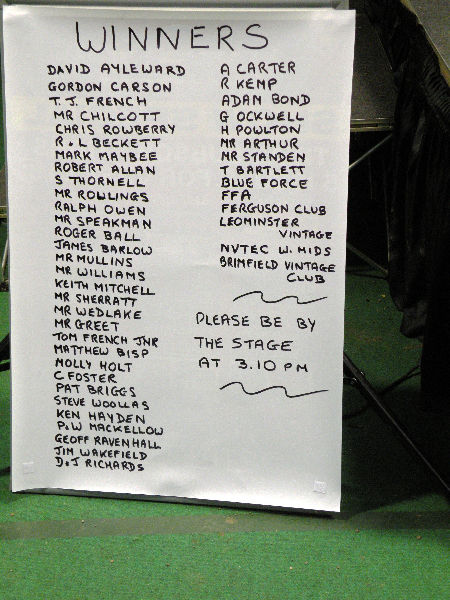 WINNERS
DAVID AYLEWARD
GORDON CARSON
T. J. FRENCH
MR CHILCOTT
CHRIS ROWBERRY
R. L BECKETT
MARK MAYBEE
ROBERT ALLAN
S THORNELL
MR ROWLINGS
RALPH OWEN
MR SPEAKMAN
ROGER BALL
JAMES BARLOW
MR MULLINS
MR WILLIAMS
KEITH MITCHELL
MR SHERRATT
MR WEDLAKE
MR GREET
TOM FRENCH JNR
MATTHEW BISP
MOLLY HOLT
C FOSTER
PAT BRIGGS
STEVE WOOLLAS
KEN HAYDEN
P. W MACKELLOW
GEOFF RAVENHALL
JIM WAKEFIELD
D. J RICHARDS
A CARTER
R KEMP
ADAM BOND
G OCKWELL
H POULTON
MR ARTHUR
MR STANDEN
T BARTLETT
BLUE FORCE
FFA
FERGUSON CLUB
LEOMINSTER
VINTAGE
NVTEC W. MIDS
BRIMFIELD VINTAGE
CLUB
PLEASE BE BY
THE STAGE
AT 3.10 PM